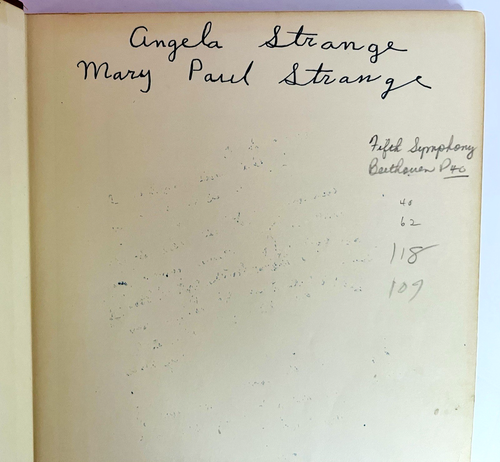 Angela Strange
Mary Paul Strange
Fifth Symphony
Beethoven P40
40
62
118
109